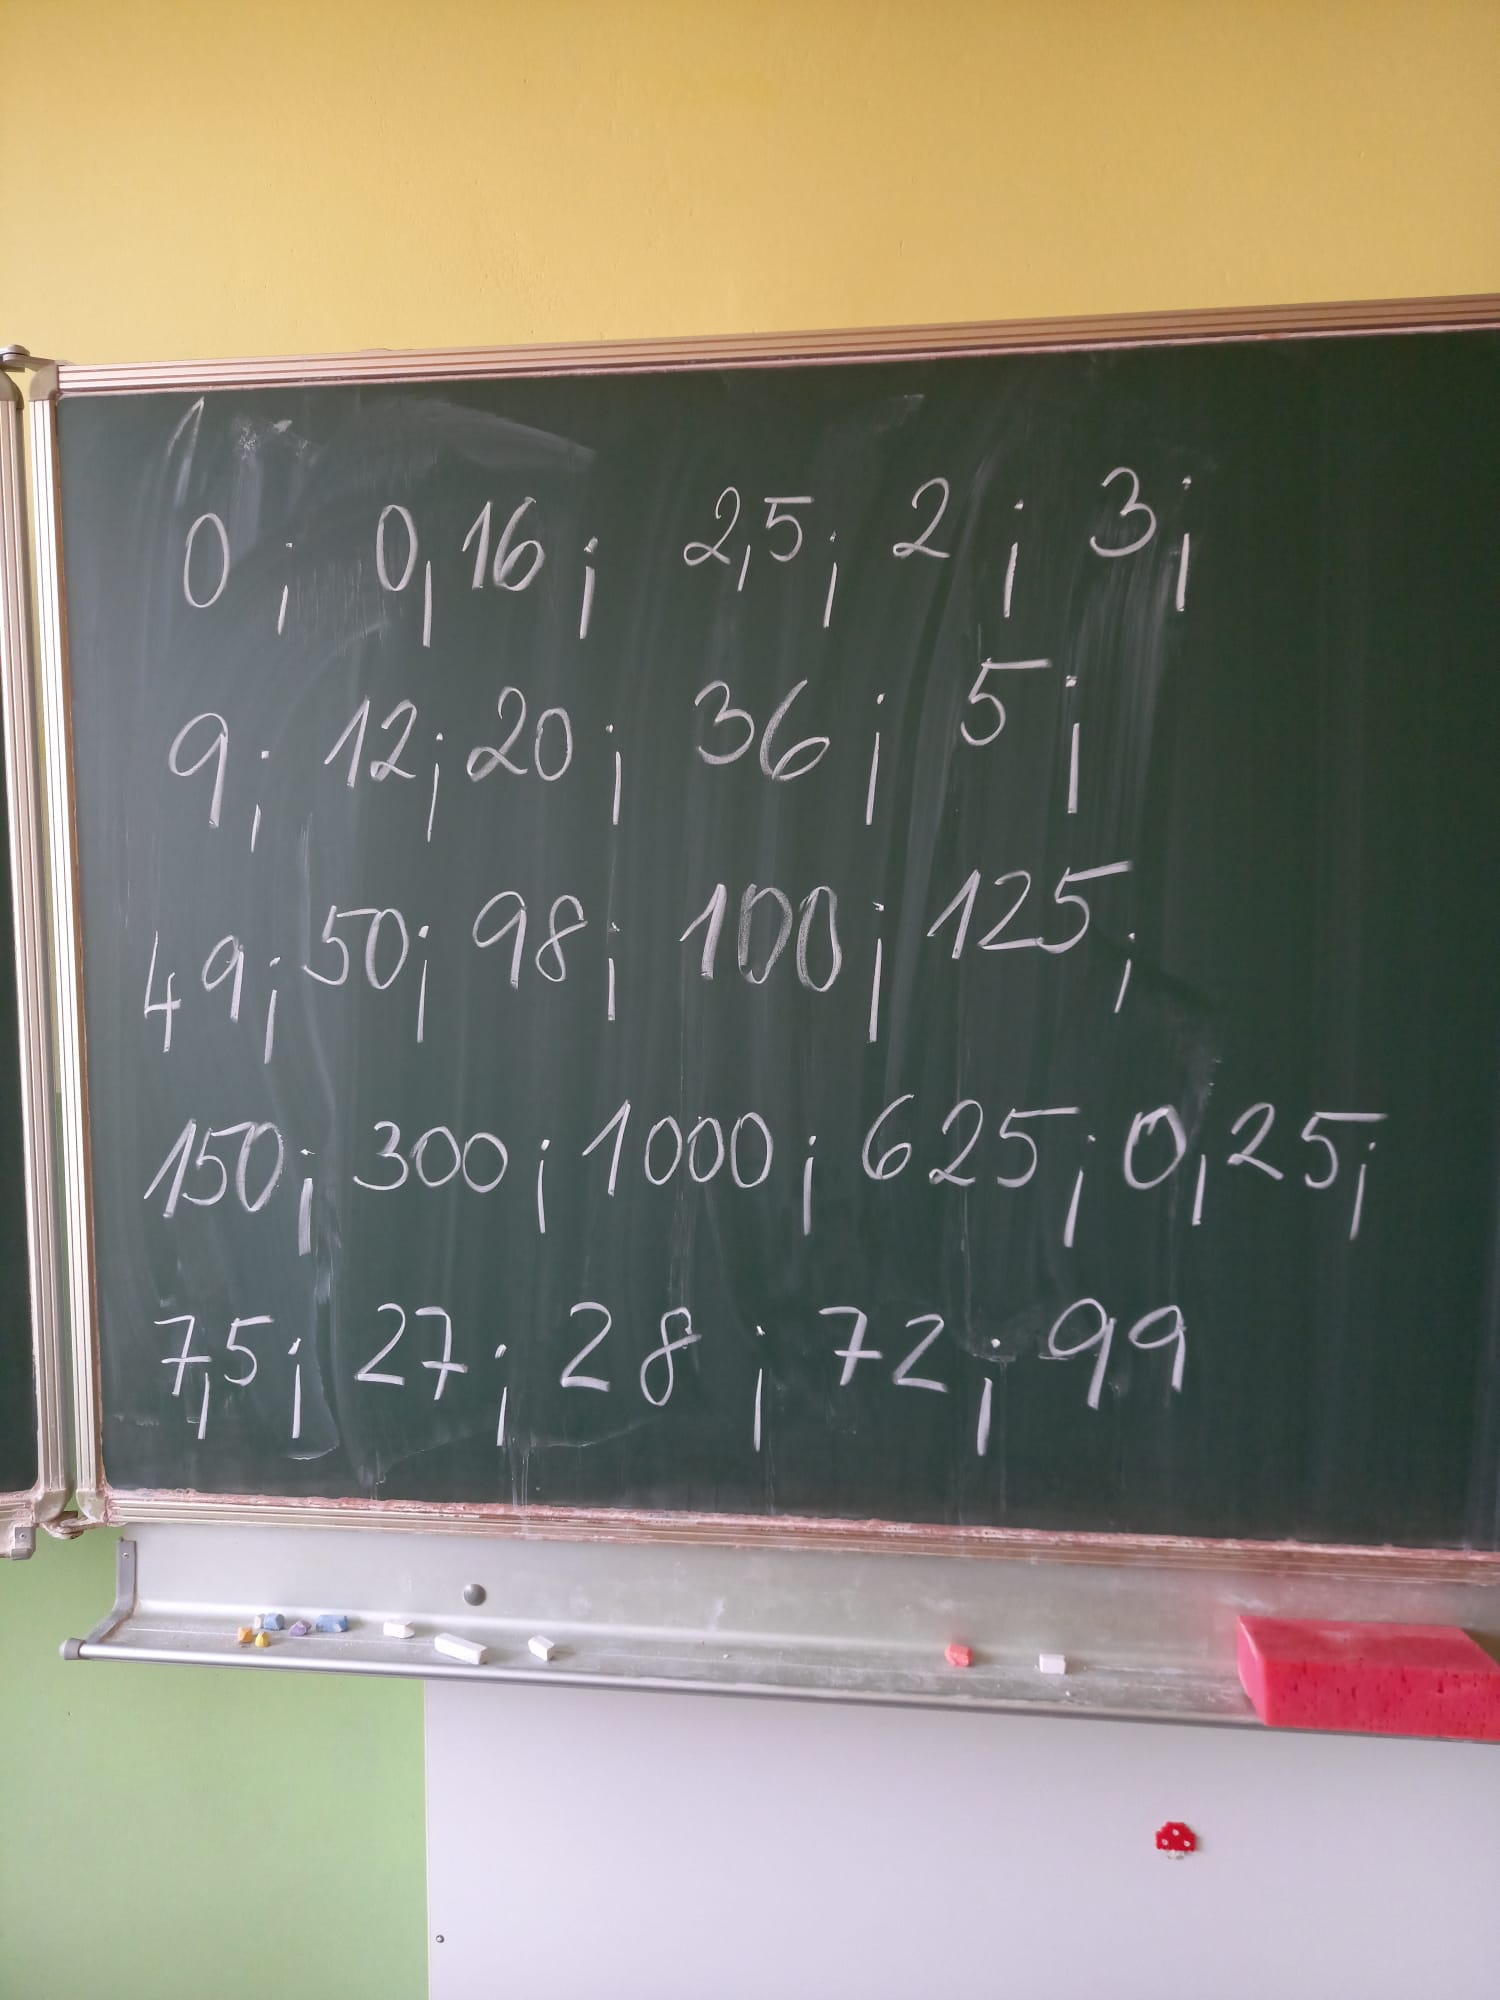 0; 0,16; 2,5; 2; 3;
9; 12; 20; 36; 5;
49; 50; 98; 100; 125;
150; 300; 1000; 625; 0,25;
7,5; 27; 28; 72; 99